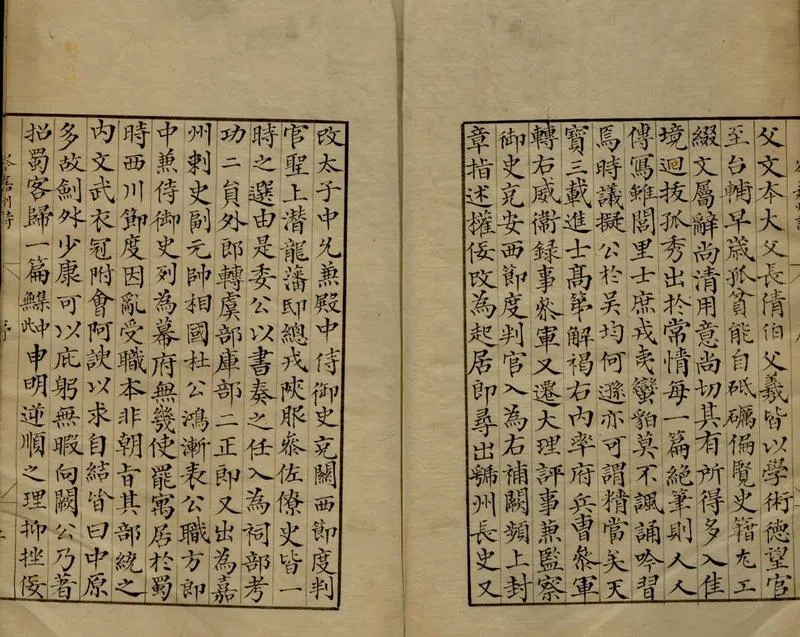 父文本大父長倩伯父羲皆以學術德望官
至台輔早歲孤貧能自砥礪徧覽史籍尤工
綴文屬辭尚清用意尚切其有所得多入佳
境迥拔孤秀出於常情每一篇絶筆則人人
傳寫雖閭里士庶戎夷蠻貊莫不諷誦吟習
焉時議擬公於吴均何遜亦可謂精當矣天
寳三載進士髙第解褐右内率府兵曹叅軍
轉右威衛録事叅軍又遷大理評事兼監察
御史充安西節度判官入為右補闕頻上封
章指述權佞改為起居郎尋出虢州長史又
改太子中允兼殿中侍御史充關西節度判
官聖上潛龍藩邸總戎陜服叅佐僚史皆一
時之選由是委公以書奏之任入為祠部考
功二貟外郎轉虞部庫部二正郎又出為嘉
州刺史副元帥相國杜公鴻漸表公職方郎
中兼侍御史列為幕府無幾使罷寓居於蜀
時西川節度因亂受職本非朝旨其部統之
内文武衣冠附會阿諛以求自結皆曰中原
多故劍外少康可以庇躬無暇向闕公乃著
招蜀客歸一篇集無此申明逆順之理抑挫佞
岑嘉州詩 序